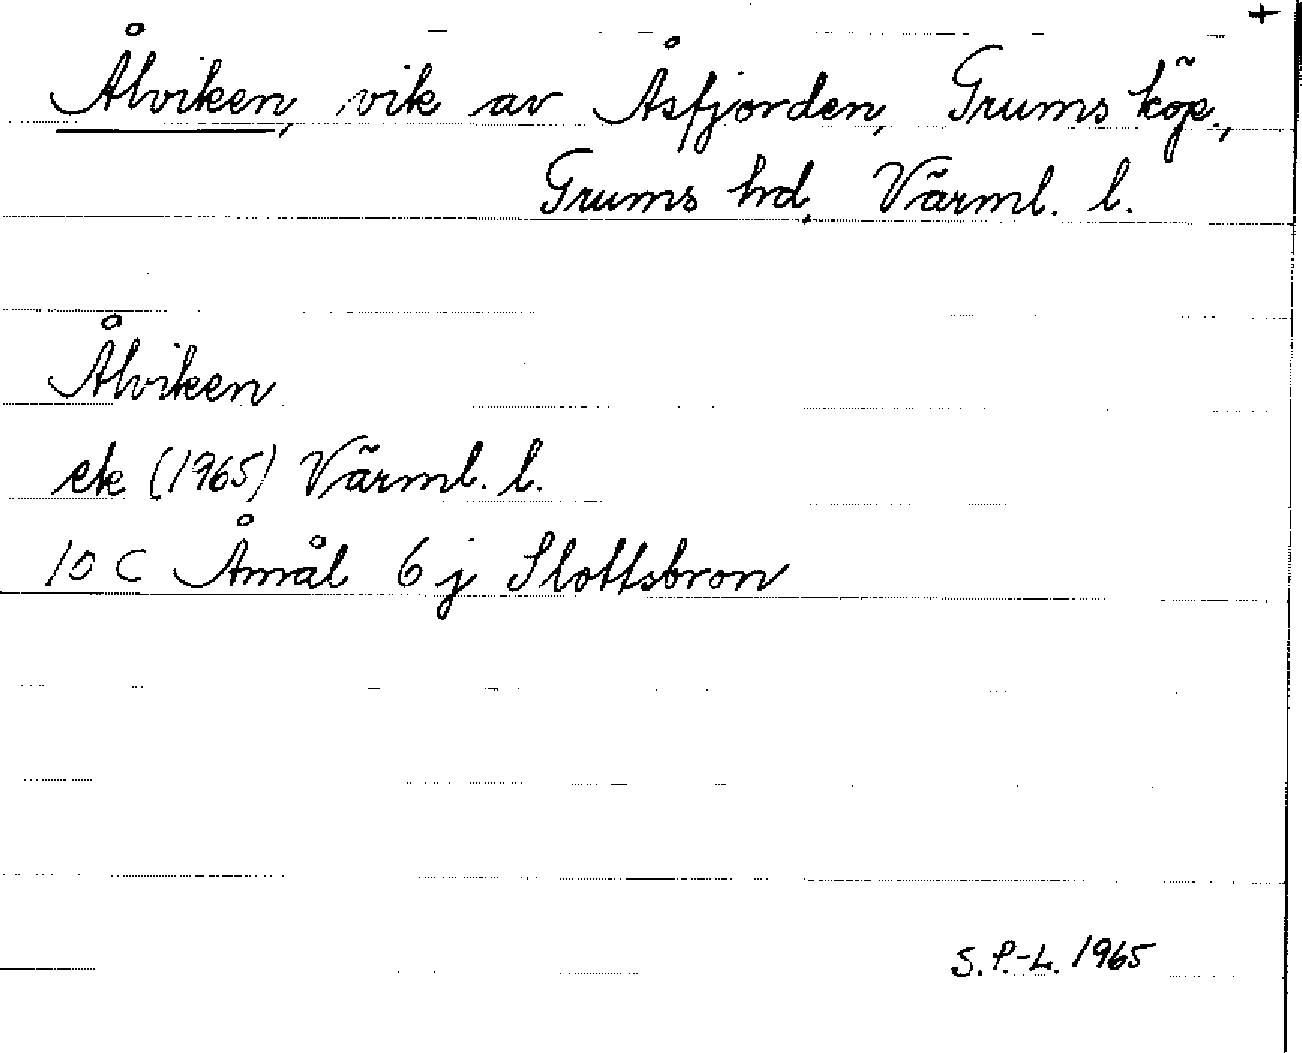 +
Ålviken, vik av Åsfjorden, Grums köp.,
Grums hd, Värml. l.
Ålviken
ek (1965) Värml. l.
10 C Åmål 6 j Slottsbron
S. P.-L. 1965